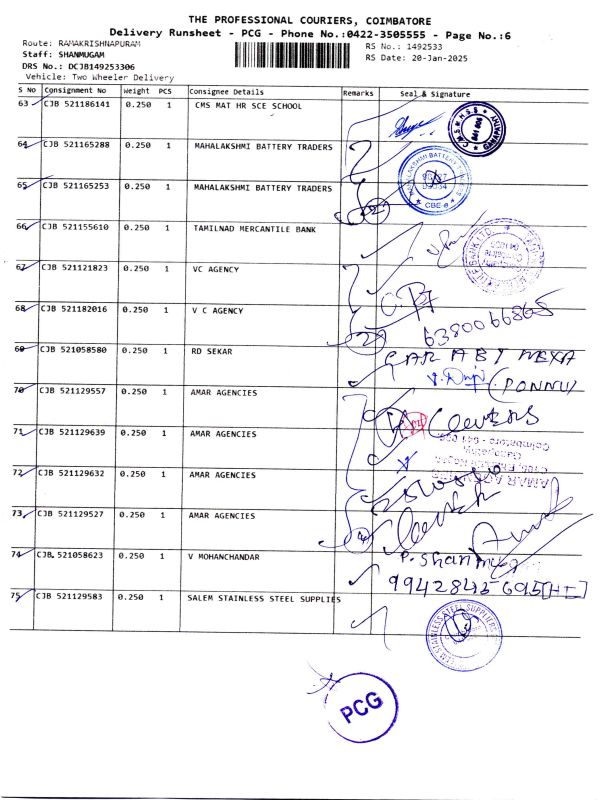 THE PROFESSIONAL COURIERS, COIMBATORE
Delivery Runsheet - PCG - Phone No.:0422-3505555 - Page No.:6
Route: RAMAKRISHNAPURAM
RS No.: 1492533
Staff: SHANMUGAM
RS Date: 20-Jan-2025
DRS No.: DCJB149253306
Vehicle: Two Wheeler Delivery
S No Consignment No Weight PCS Consignee Details Remarks Seal & Signature
63 CJB 521186141 0.250 1 CMS MAT HR SCE SCHOOL
C.M.S.M.H.S.S GANAPATHY 641 006
64 CJB 521165288 0.250 1 MAHALAKSHMI BATTERY TRADERS
MAHALAKSHMI BATTERY CBE-6
65 CJB 521165253 0.250 1 MAHALAKSHMI BATTERY TRADERS
66 CJB 521155610 0.250 1 TAMILNAD MERCANTILE BANK
BANK LTD
67 CJB 521121823 0.250 1 VC AGENCY
68 CJB 521182016 0.250 1 V C AGENCY
6380066865
69 CJB 521058580 0.250 1 RD SEKAR
(PONNU)
70 CJB 521129557 0.250 1 AMAR AGENCIES
71 CJB 521129639 0.250 1 AMAR AGENCIES
AMAR AGENCIES
Ganapathy,
Coimbatore - 641 006
72 CJB 521129632 0.250 1 AMAR AGENCIES
73 CJB 521129527 0.250 1 AMAR AGENCIES
74 CJB 521058623 0.250 1 V MOHANCHANDAR
P. Shanmuga
9942845695 [HI]
75 CJB 521129583 0.250 1 SALEM STAINLESS STEEL SUPPLIES
STAINLESS STEEL SUPPLIERS
PCG